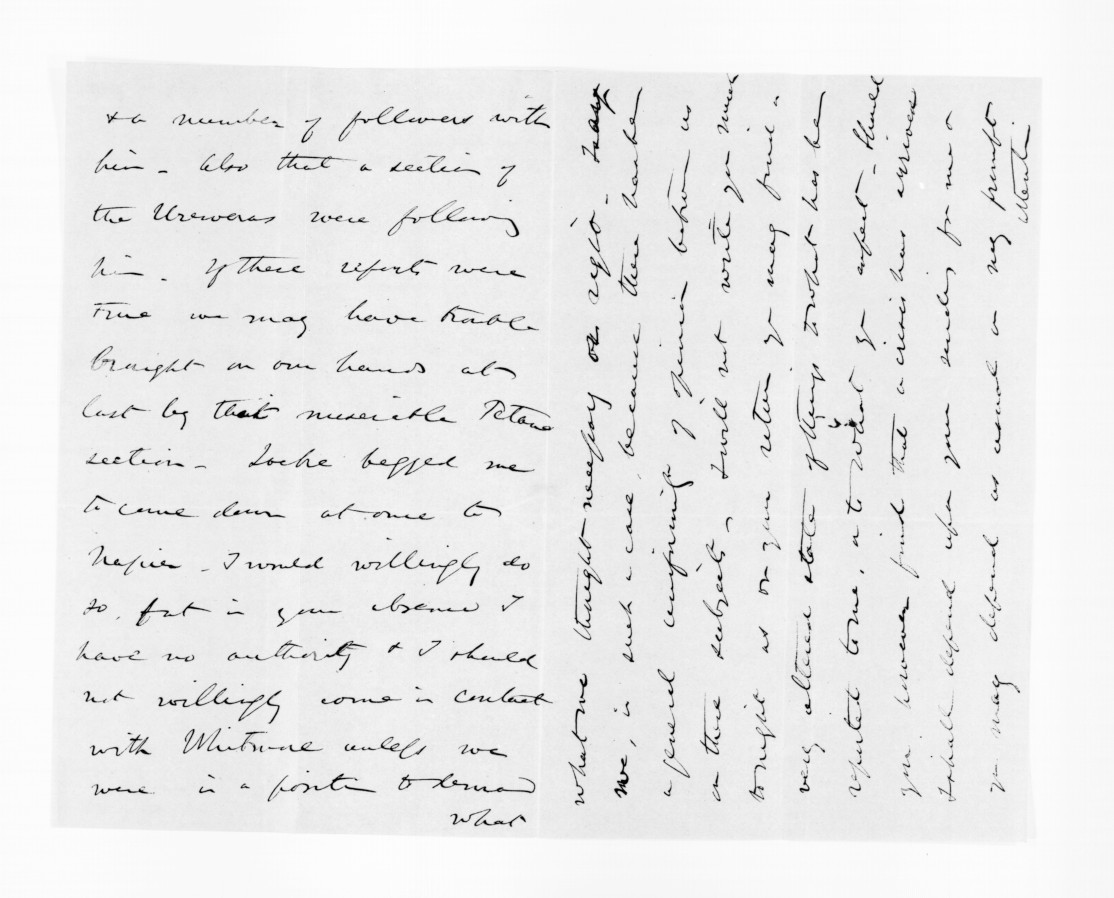 & a number of followers with
him - Also that a section of
the Ureweras were following
him - If these reports were
true we may have trouble
brought on our hands at
last by that miserable Petane
section - Locke begged me
to come down at once to
Napier - I would willingly do
so, but in your absence I
have no authority & I should
not willingly come in contact
with Whitmore unless we
were in a position to demand
what
what we thought necessary or right - I say
we, in such a case, because there has been
a general conformity of opinion between us
on these subjects - I will not write you much
tonight as on your return you may find a
very altered state of things to what has been
reported to me, or to what you expect - Should
you however find that a crisis has arrived
I shall depend upon your sending for me &
you may depend as usual on my prompt